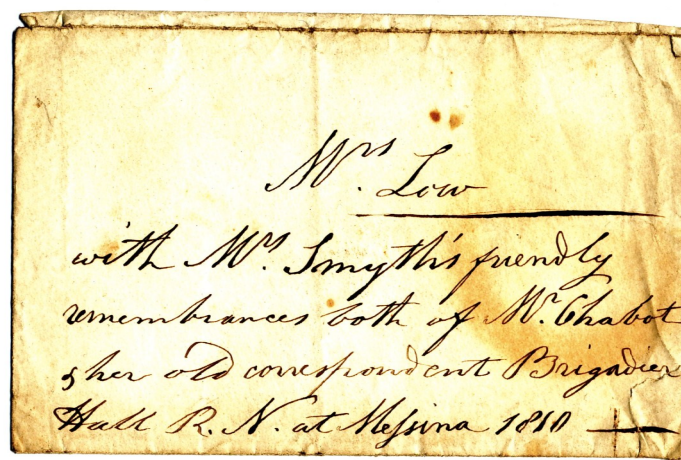 Mrs. Low
with Mrs. Smyth's friendly
remembrances both of Mr. Chabot
& her old correspondent Brigadier
Hall R. N. at Messina 1810